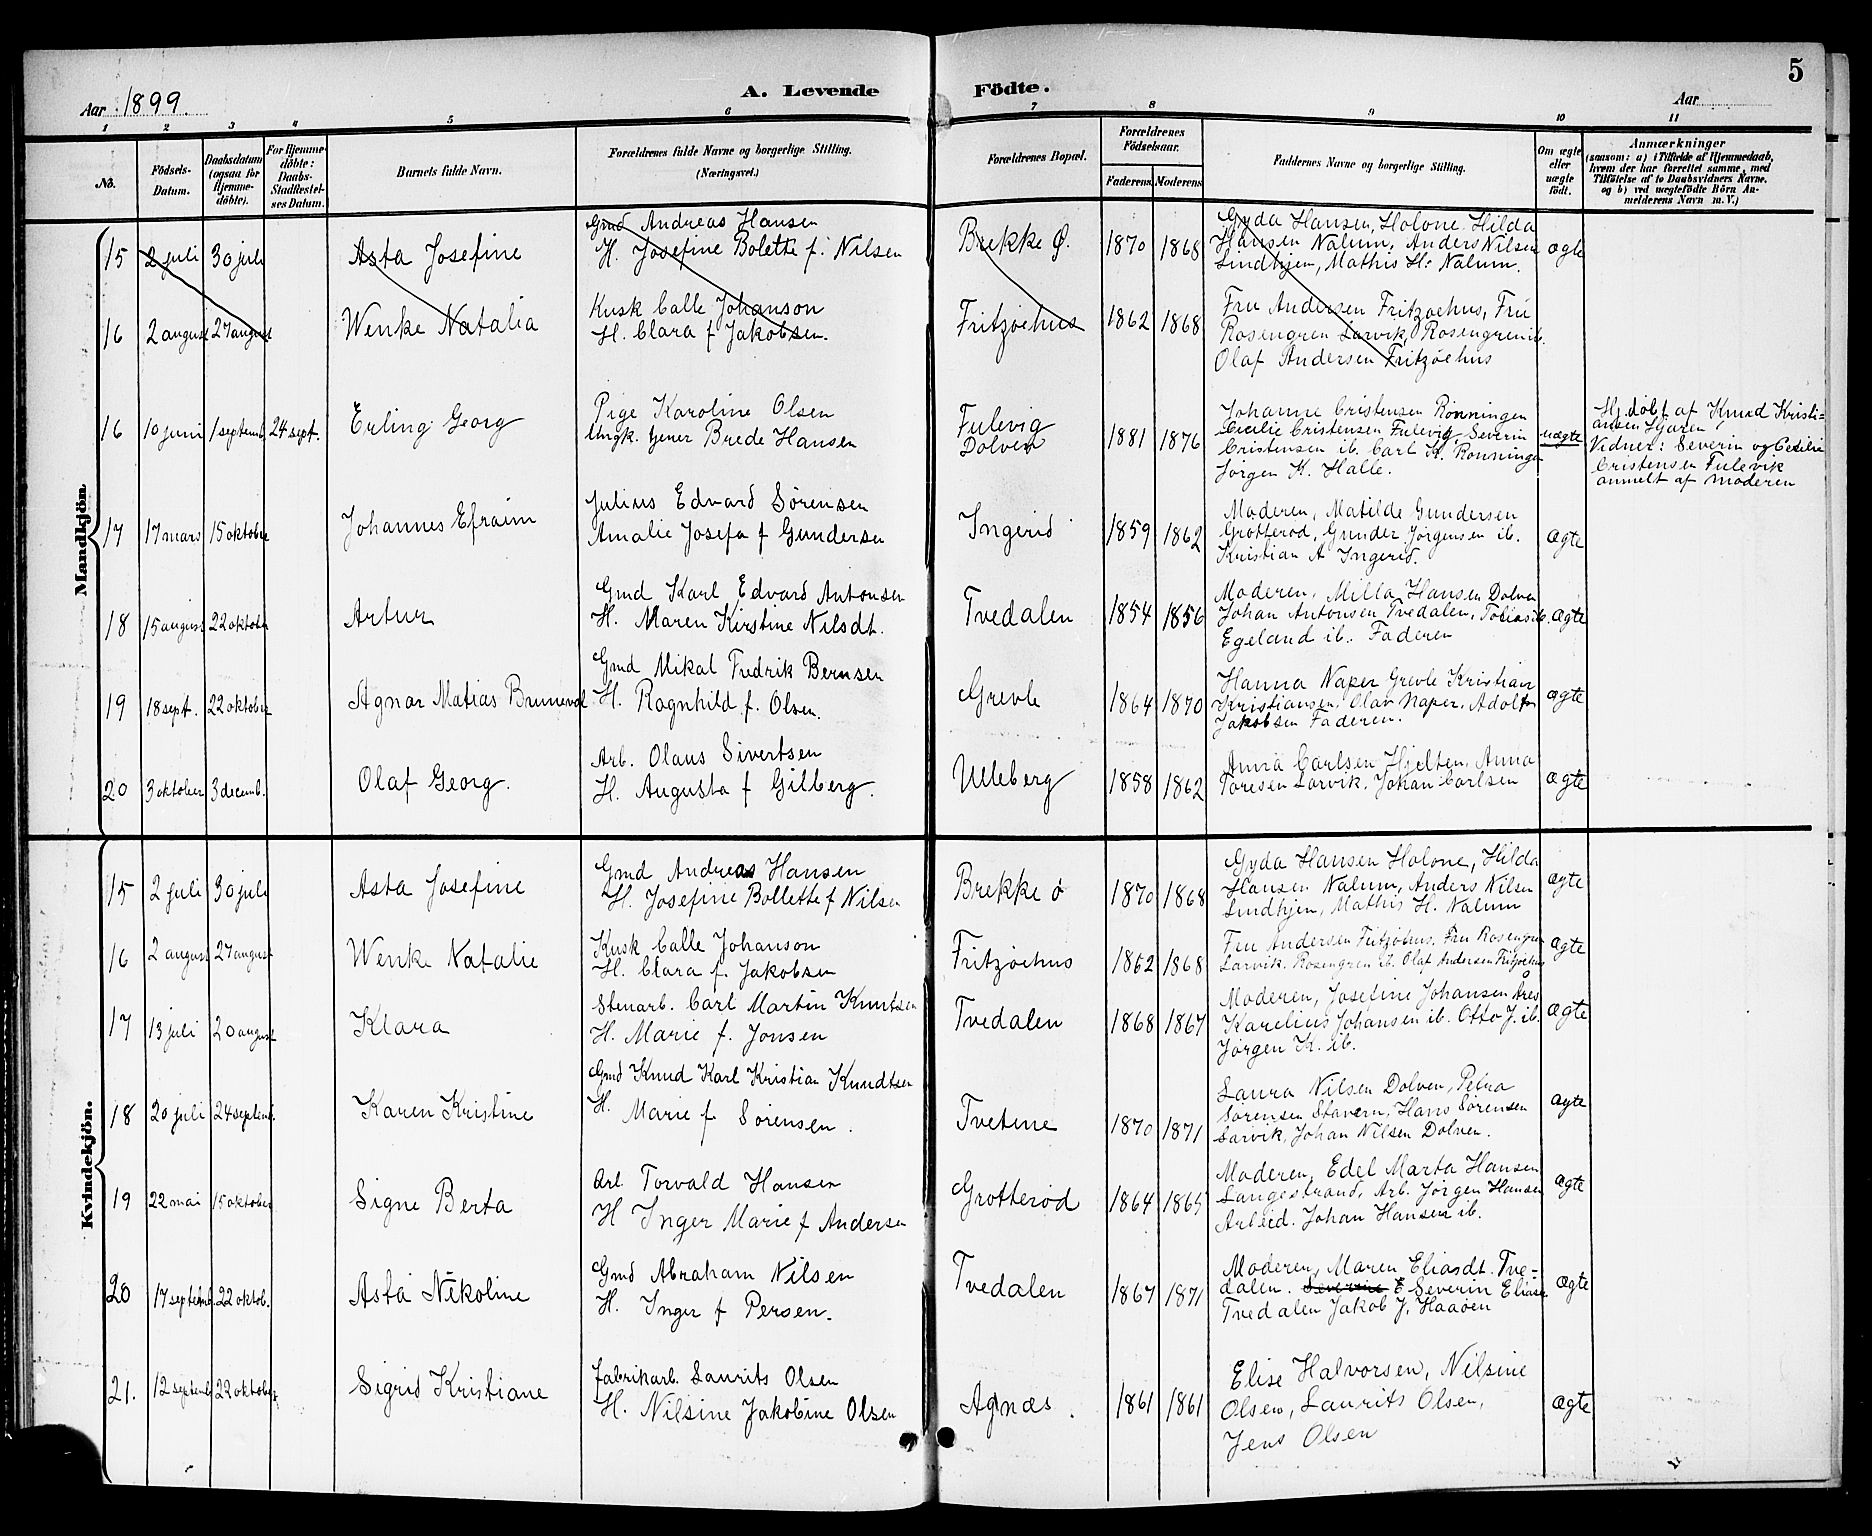 Aar 1899.
A. Levende Födte.
Aar
5
1 2 3 4 5 6 7 8 9 10 11
No.
Födsels-Datum.
Daabsdatum (ogsaa for Hjemme-döbte).
For Hjemme-döbte: Daabs-Stadfæstel-ses Datum.
Barnets fulde Navn.
Forældrenes fulde Navne og borgerlige Stilling.
(Næringsvei.)
Forældrenes Bopæl.
Forældrenes Födselsaar.
Faderens. Moderens.
Faddernes Navne og borgerlige Stilling.
Om ægte eller uægte födt.
Anmærkninger
(saasom: a) i Tilfælde af Hjemmedaab, hvem der har forrettet samme, med Tilföielse af to Daabsvidners Navne. og b) ved uægtefödte Börn An-melderens Navn m. V.)
Mandkjön.
15 2 juli 30 juli Asta Josefine
Gmd Andreas Hansen
H. Josefine Bolette f. Nilsen
Brekke Ø. 1870 1868
Gyda Hansen, Holone. Hilda
Hansen Nalum, Anders Nilsen
Lindhjem, Mathis H. Nalum.
ægte
16 2 august 27 august Wenke Natalia
Kusk Calle Johanson
H. Clara f Jakobsen.
Fritzøehus 1862 1868
Fru Andersen Fritzøehus, Fru
Rosengren Larvik, Rosengren ib.
Olaf Andersen Fritzöehus
16 10 juni 1 septemb. 24 sept. Erling Georg
Pige Karoline Olsen
Ungk. Gener Brede Hansen
Fulevig
Dolven
1881 1876
Johanne Cristensen Rønningen
Cecilie Cristensen Fulevig, Severin
Cristensen ib. Carl K. Rønningen
Jørgen K. Halle.
uægte
Hj. døbt af Knud Kristi=
ansen
Vidner: Severin og Cecilie
Cristensen Fulevik
anmelt af moderen
17 17 mars 15 oktober Johannes Efraim
Julius Edvard Sørensen
Amalie Josefa f Gundersen
Ingerid 1859 1862
Moderen, Matilde Gundersen
Grotterød, Gunder Jørgensen ib.
Kristian A Ingerid.
ægte
18 15 august 22 oktober Artur
Gmd Karl Edvard Antonsen
H. Maren Kirstine Nilsdt.
Tvedalen 1854 1856
Moderen, Milla Hansen Dolven
Johan Antonsen Tvedalen, Tobias
Egeland ib. Faderen
ægte
19 18 sept. 22 oktober Agnar Matias Brunevol
Gmd Mikal Fredrik Bernsen
H. Ragnhild f. Olsen.
Grevle 1864 1870
Hanna Naper Grevle Kristian
Kristiansen, Olav Naper, Adolf
Jakobsen Faderen.
ægte
20 3 oktober 3 decemb. Olaf Georg.
Arb. Olaus Sivertsen
H. Augusta f Gilberg.
Ulleberg 1858 1862
Anna Carlsen Hjelten, Anna
Toresen Larvik, Johan Carlsen
ægte
Kvindekjön.
15 2 juli 30 juli Asta Josefine
Gmd Andreas Hansen
H. Josefine Bollette f Nilsen
Brekke ø 1870 1868
Gyda Hansen Holone, Hilda
Hansen Nalum, Anders Nilsen
Lindhjem, Mathis H. Nalum
ægte
16 2 august 27 august Wenke Natalie
Kusk Calle Johanson
H. Clara f. Jakobsen
Fritzöehus 1862 1868
Fru Andersen Fritzöhus. Fru Rosengren
Larvik. Rosengren ib. Olaf Andersen Fritzöehus
ægte
17 13 juli 20 august Klara
Stenarb. Carl Martin Knutsen
H. Marie f. Jonsen
Tvedalen 1868 1867
Moderen, Josefine Johansen Åres
Karelius Johansen ib. Otto J. ib.
Jørgen K. ib.
ægte
18 20 juli 24 septemb. Karen Kristine
Gmd Knud Karl Kristian Knudtsen
H. Marie f Sørensen.
Tvetene 1870 1871
Laura Nilsen Dolven, Petra
Sørensen Stavern, Hans Sørensen
Larvik, Johan Nilsen Dolven.
ægte
19 22 mai 15 oktober Signe Berta
Arb. Torvald Hansen
H Inger Marie f Andersen
Grotterød 1864 1865
Moderen, Edel Marta Hansen
Langestrand, Arb. Jørgen Hansen
Arbeid. Johan Hansen ib.
ægte
20 17 septemb. 22 oktob. Asta Nikoline
Gmd Abraham Nilsen
H. Inger f Persen.
Tvedalen 1867 1871
Moderen, Maren Eliasdt. Tve=
dalen. Severine E Severin Elias
Tvedalen Jakob J. Haaøen
ægte
21. 12 septemb 22 oktober Sigrid Kristiane
Fabrikarb. Laurits Olsen
H. Nilsine Jakobine Olsen
Agnæs. 1861 1861
Elise Halvorsen, Nilsine
Olsen, Laurits Olsen,
Jens Olsen
ægte